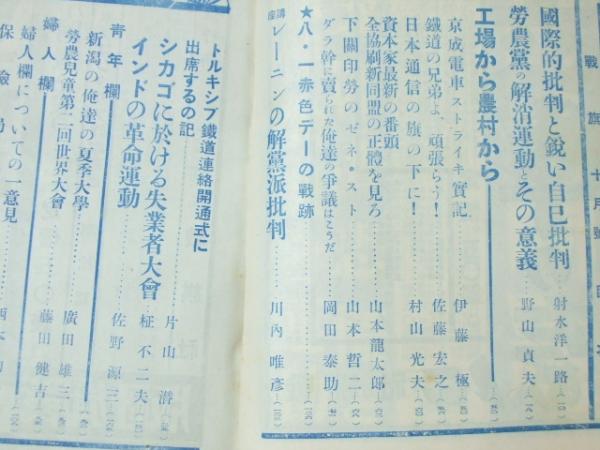 戰旗十月號目次
國際的批判と鋭い自已批判……射水洋一路
勞農黨の解消運動とその意義……野山貞夫
工場から農村から
京成電車ストライキ實記……伊藤極
鐵道の兄弟よ、頑張らう！……佐藤宏之
日本通信の旗の下に！……村山光夫
資本家最新の番頭
全協刷新同盟の正體を見ろ……山本龍太郎
下關印勞のゼネ・スト……山本哲二
ダラ幹に賣られた俺達の爭議はこうだ……岡田泰助
★八・一赤色デーの戰跡
講座 レーニンの解黨派批判……川內唯彥
トルキシブ鐵道連絡開通式に
出席するの記……片山潛
シカゴに於ける失業者大會
インドの革命運動……柾不二夫
靑年欄……佐野源三
新潟の俺達の夏季大學
勞農兒童第二回世界大會……廣田雄三
婦人欄……藤田健吉
婦人欄についての一意見
保險